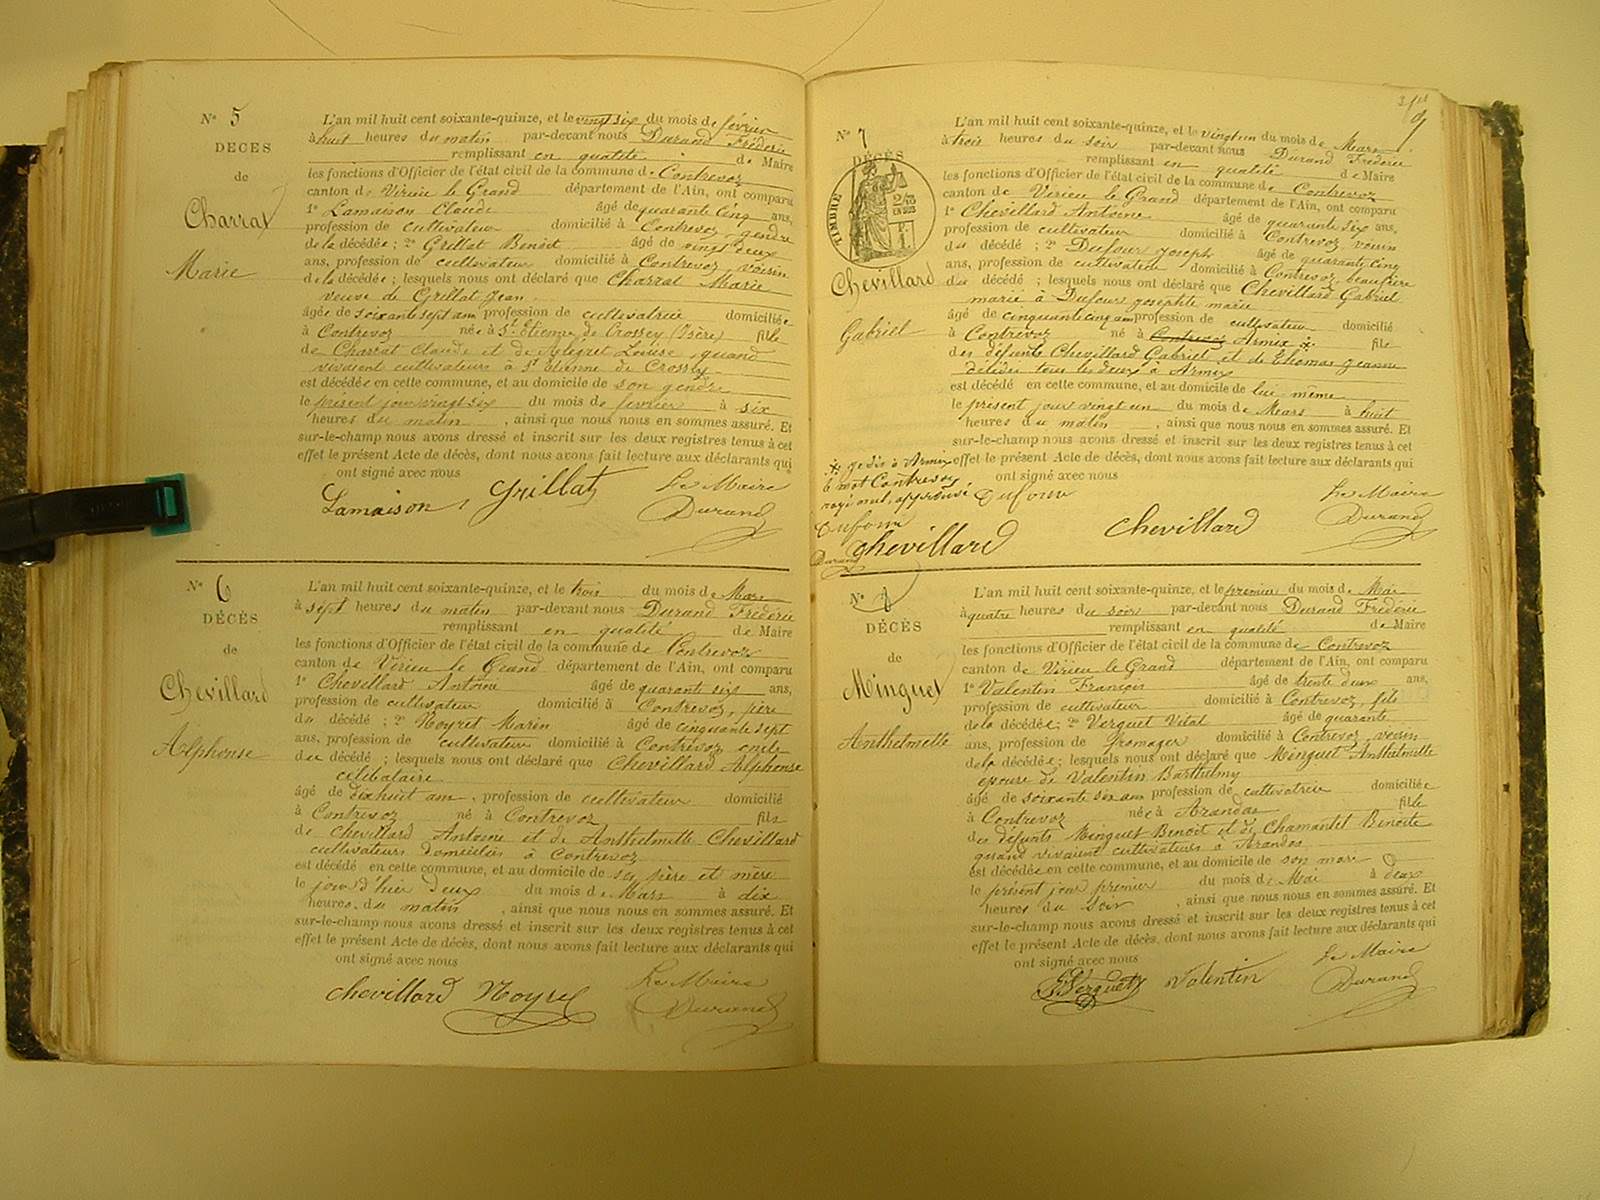 Nº 5
DÉCÈS
de
Charrat
Marie
L'an mil huit cent soixante-quinze, et le vingt six du mois de février
à huit heures du matin par-devant nous Durand Fréderic
remplissant en qualité de Maire
les fonctions d'Officier de l'état civil de la commune de Contrevoz
canton de Virieu le Grand département de l'Ain, ont comparu
1º Lamaison Claude âgé de quarante cinq ans,
profession de cultivateur domicilié à Contrevoz, gendre
de la décédée ; 2º Grillat Benoît âgé de vingt deux
ans, profession de cultivateur domicilié à Contrevoz, voisin
de la décédée ; lesquels nous ont déclaré que Charrat Marie
veuve de Grillat Jean
âgée de soixante sept ans profession de cultivatrice domiciliée
à Contrevoz née à St Etienne de Crossey (Isère) fille
de Charrat Claude et de Louise, quand
vivaient cultivateurs à St Etienne de Crossey
est décédée en cette commune, et au domicile de son gendre
le présent jour vingt six du mois de février à six
heures du matin, ainsi que nous nous en sommes assuré. Et
sur-le-champ nous avons dressé et inscrit sur les deux registres tenus à cet
effet le présent Acte de décès, dont nous avons fait lecture aux déclarants qui
ont signé avec nous
Lamaison Grillat Le Maire
Durand
Nº 6
DÉCÈS
de
Chevillard
Alphonse
L'an mil huit cent soixante-quinze, et le trois du mois de Mars
à sept heures du matin par-devant nous Durand Fréderic
remplissant en qualité de Maire
les fonctions d'Officier de l'état civil de la commune de Contrevoz
canton de Virieu le Grand département de l'Ain, ont comparu
1º Chevillard Antoine âgé de quarante six ans,
profession de cultivateur domicilié à Contrevoz, père
du décédé ; 2º Noyret Marin âgé de cinquante sept
ans, profession de cultivateur domicilié à Contrevoz oncle
du décédé ; lesquels nous ont déclaré que Chevillard Alphonse
célibataire
âgé de dix huit ans, profession de cultivateur domicilié
à Contrevoz né à Contrevoz fils
de Chevillard Antoine et de Anthelmette Chevillard
cultivateurs domiciliés à Contrevoz
est décédé en cette commune, et au domicile de ses père et mère
le jour d'hier deux du mois de Mars à dix
heures du matin, ainsi que nous nous en sommes assuré. Et
sur-le-champ nous avons dressé et inscrit sur les deux registres tenus à cet
effet le présent Acte de décès, dont nous avons fait lecture aux déclarants qui
ont signé avec nous
chevillard Noyret Le Maire
Durand
Nº 7
DÉCÈS
TIMBRE
Chevillard
Gabriel
L'an mil huit cent soixante-quinze, et le vingt un du mois de Mars
à trois heures du soir par-devant nous Durand Fréderic
remplissant en qualité de Maire
les fonctions d'Officier de l'état civil de la commune de Contrevoz
canton de Virieu le Grand département de l'Ain, ont comparu
1º Chevillard Antoine âgé de quarante six ans,
profession de cultivateur domicilié à Contrevoz, voisin
du décédé ; 2º Dufour Joseph âgé de quarante cinq
ans, profession de cultivateur domicilié à Contrevoz, beaufrère
du décédé ; lesquels nous ont déclaré que Chevillard Gabriel
marié à Dufour Josephte marie
âgé de cinquante cinq ans profession de cultivateur domicilié
à Contrevoz né à Contrevoz Armix fils
des défunts Chevillard Gabriel et de Thomas Jeanne
décédés tous les deux à Armix
est décédé en cette commune, et au domicile de lui même
le présent jour vingt un du mois de Mars à huit
heures du matin, ainsi que nous nous en sommes assuré. Et
sur-le-champ nous avons dressé et inscrit sur les deux registres tenus à cet
effet le présent Acte de décès, dont nous avons fait lecture aux déclarants qui
ont signé avec nous
je dis à Armix
le mot Contrevoz
rayé nul, approuvé
Dufour
Durand Chevillard
Dufour chevillard Le Maire
Durand
Nº 8
DÉCÈS
de
Minguet
Anthelmette
L'an mil huit cent soixante-quinze, et le premier du mois de Mai
à quatre heures du soir par-devant nous Durand Fréderic
remplissant en qualité de Maire
les fonctions d'Officier de l'état civil de la commune de Contrevoz
canton de Virieu le Grand département de l'Ain, ont comparu
1º Valentin François âgé de trente deux ans,
profession de cultivateur domicilié à Contrevoz, fils
de la décédée ; 2º Verguet Vital âgé de quarante
ans, profession de fromager domicilié à Contrevoz, voisin
de la décédée ; lesquels nous ont déclaré que Minguet Anthelmette
épouse de Valentin Barthelmy
âgée de soixante six ans profession de cultivatrice domiciliée
à Contrevoz née à Arandas fille
des défunts Minguet Benoit et de Chamantet Benoite
quand vivaient cultivateurs à Arandas
est décédée en cette commune, et au domicile de son mari
le présent jour premier du mois de Mai à deux
heures du soir, ainsi que nous nous en sommes assuré. Et
sur-le-champ nous avons dressé et inscrit sur les deux registres tenus à cet
effet le présent Acte de décès, dont nous avons fait lecture aux déclarants qui
ont signé avec nous
Verguet Valentin Le Maire
Durand